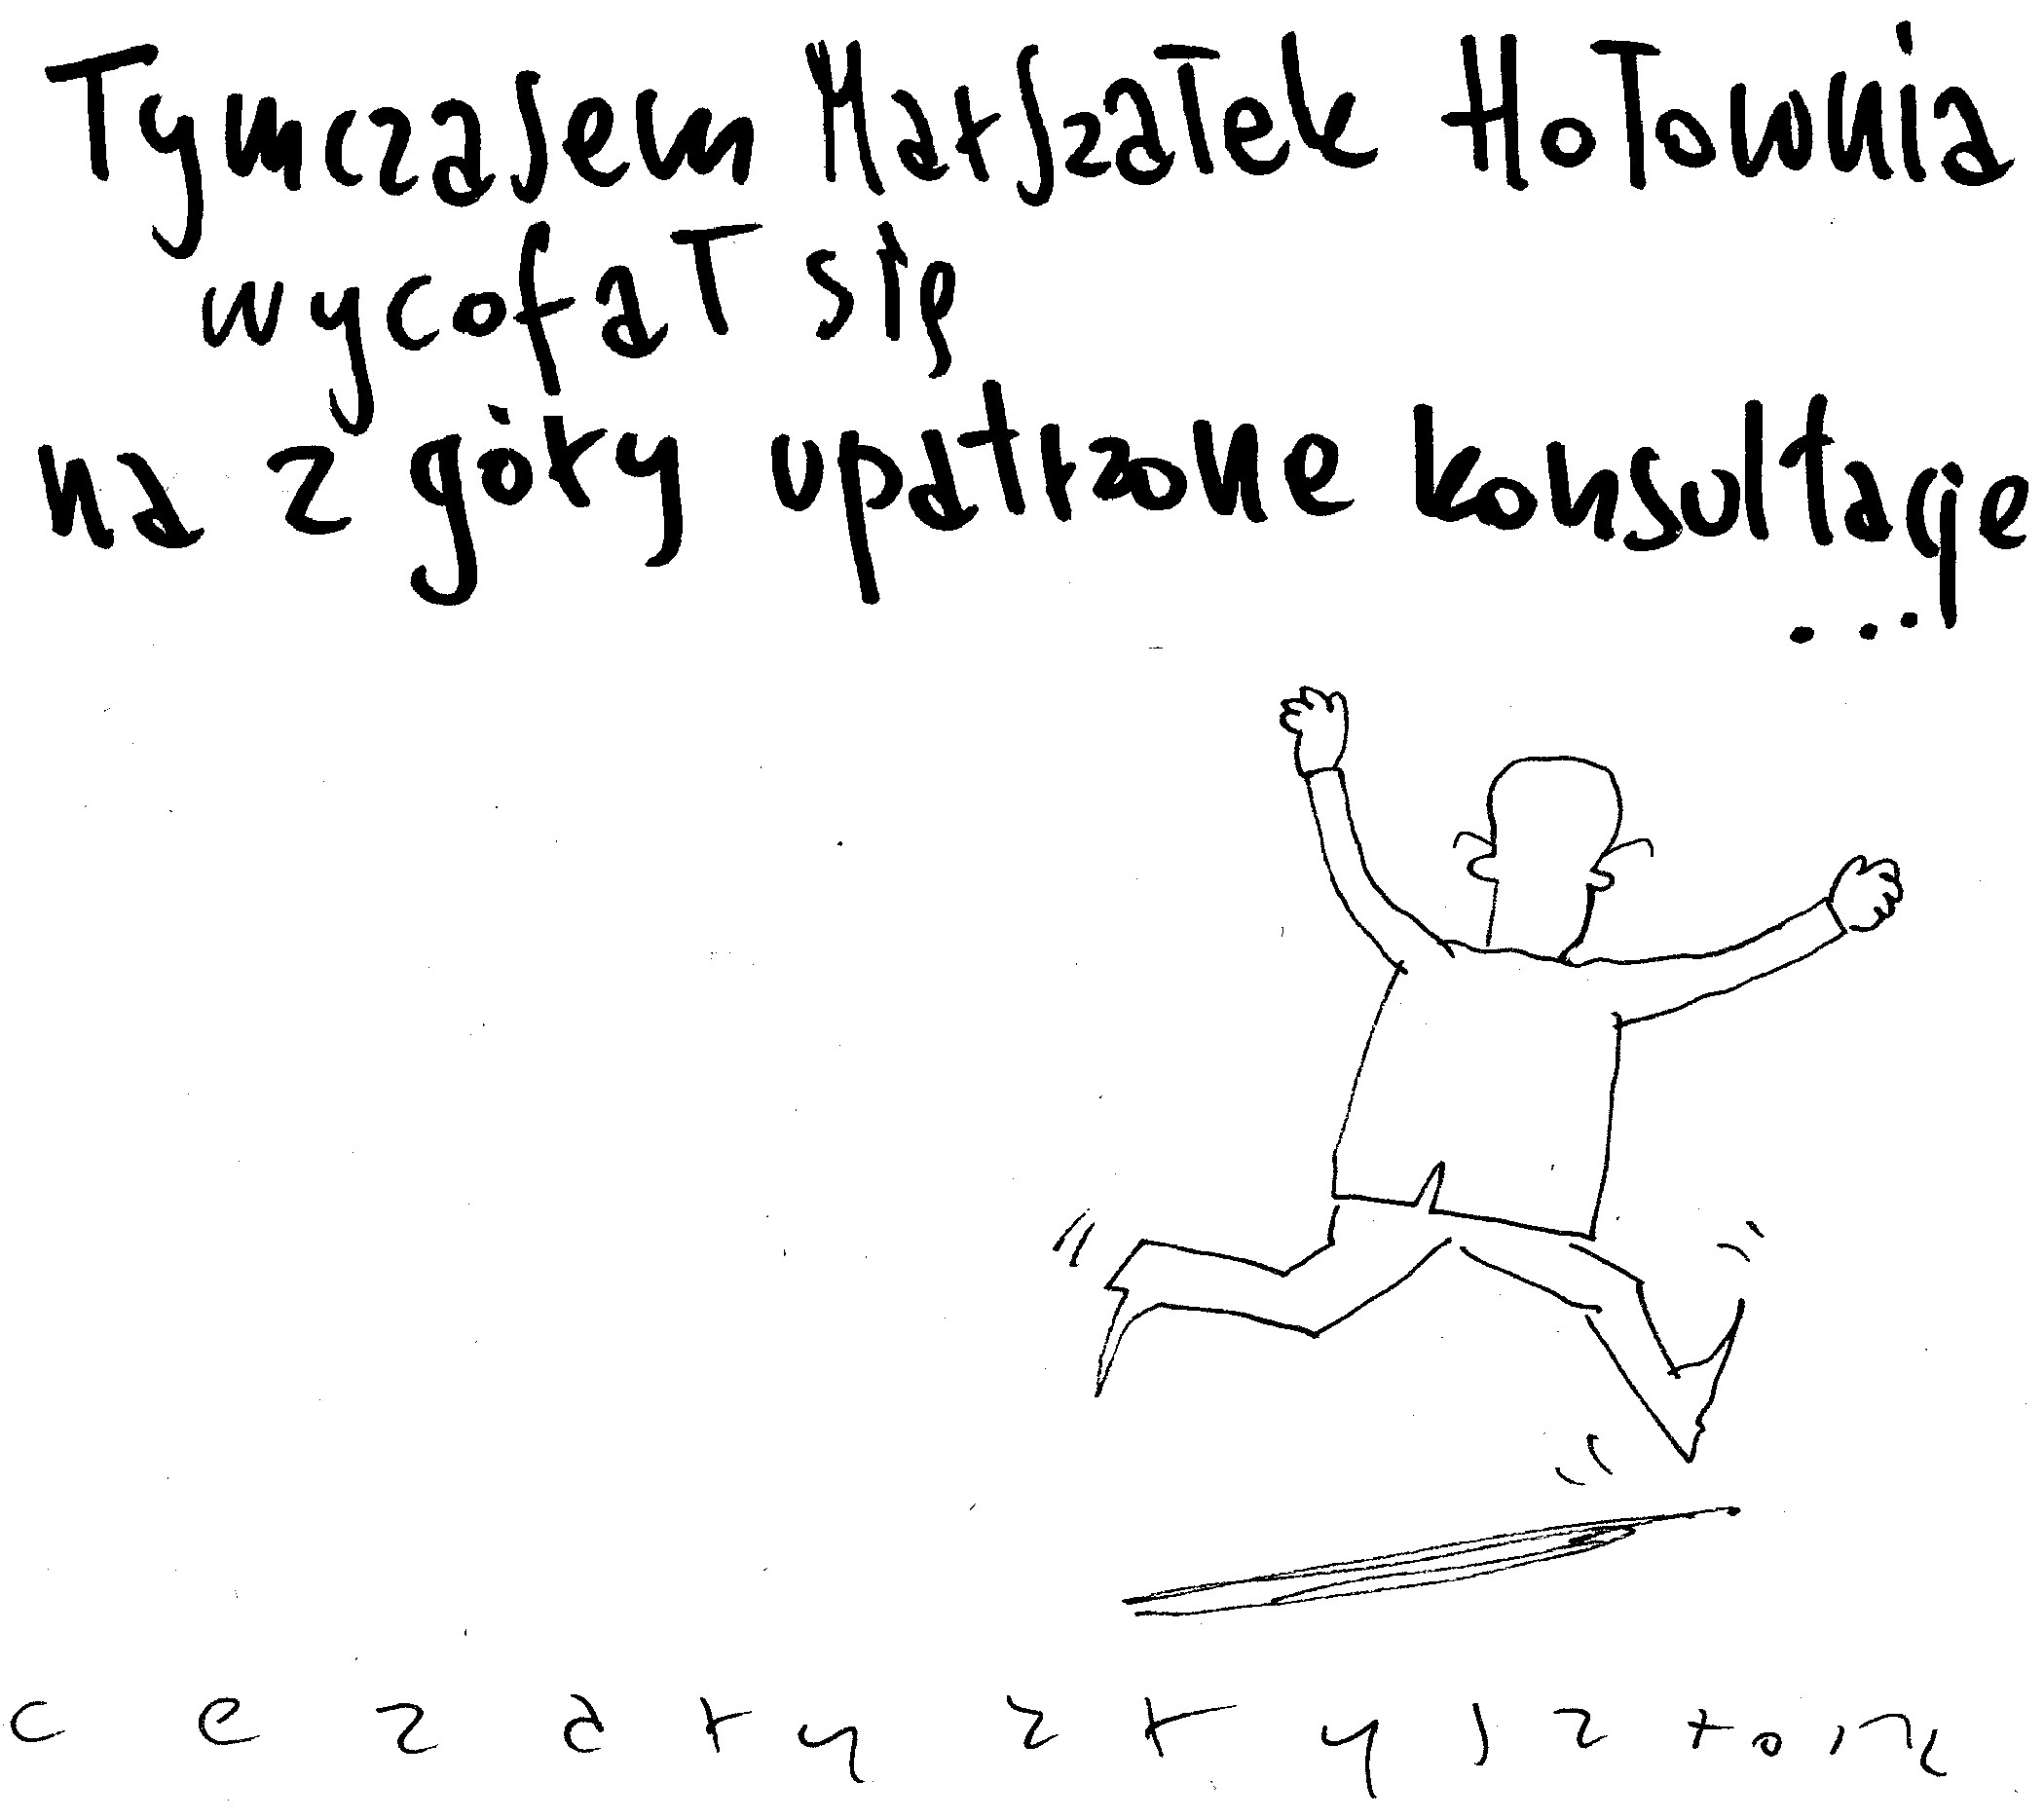 Tymczasem Marszałek Hołownia
wycofał się
na z góry upatrzone konsultacje
...
cezary krysztopa